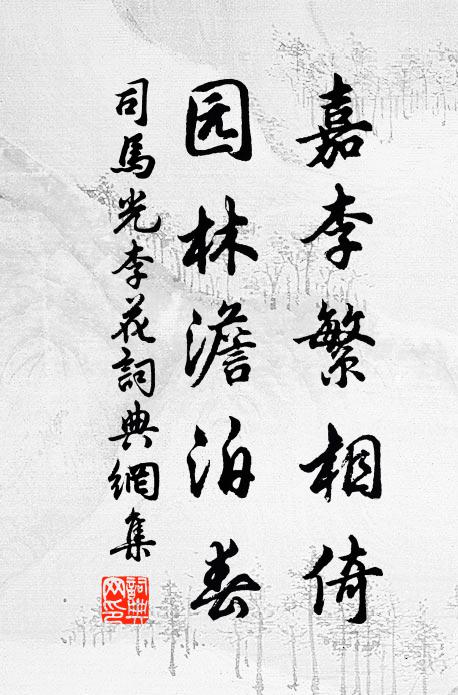 嘉李繁相倚
园林澹泊春
司馬光李花詞典網集